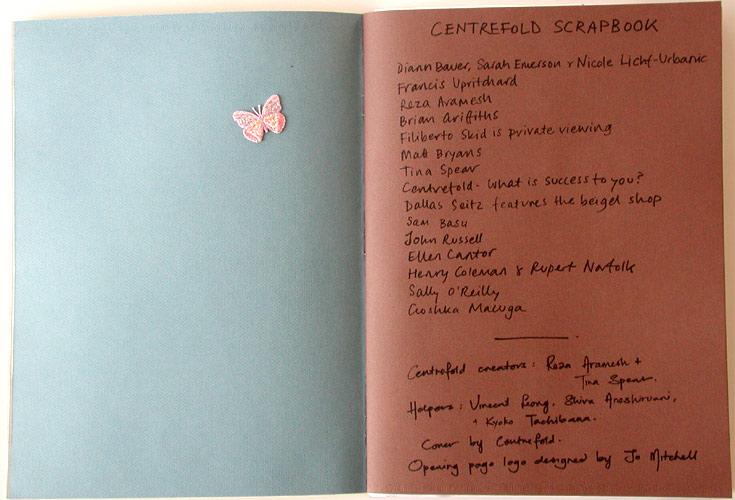 CENTREFOLD SCRAPBOOK
Diann Bauer, Sarah Emerson & Nicole Licht-Urbanic
Francis Upritchard
Reza Aramesh
Brian Griffiths
Filiberto Skid is private viewing
Matt Bryans
Tina Spear
Centrefold - What is success to you?
Dallas Seitz features the beigel shop
Sam Basu
John Russell
Ellen Cantor
Henry Coleman & Rupert Norfolk
Sally O'Reilly
Goshka Macuga
Centrefold creators: Reza Aramesh +
Tina Spear.
Helpers: Vincent Leong, Shiva Anoshirvani,
+ Kyoko Tachibana.
Cover by Centrefold.
Opening page logo designed by Jo Mitchell